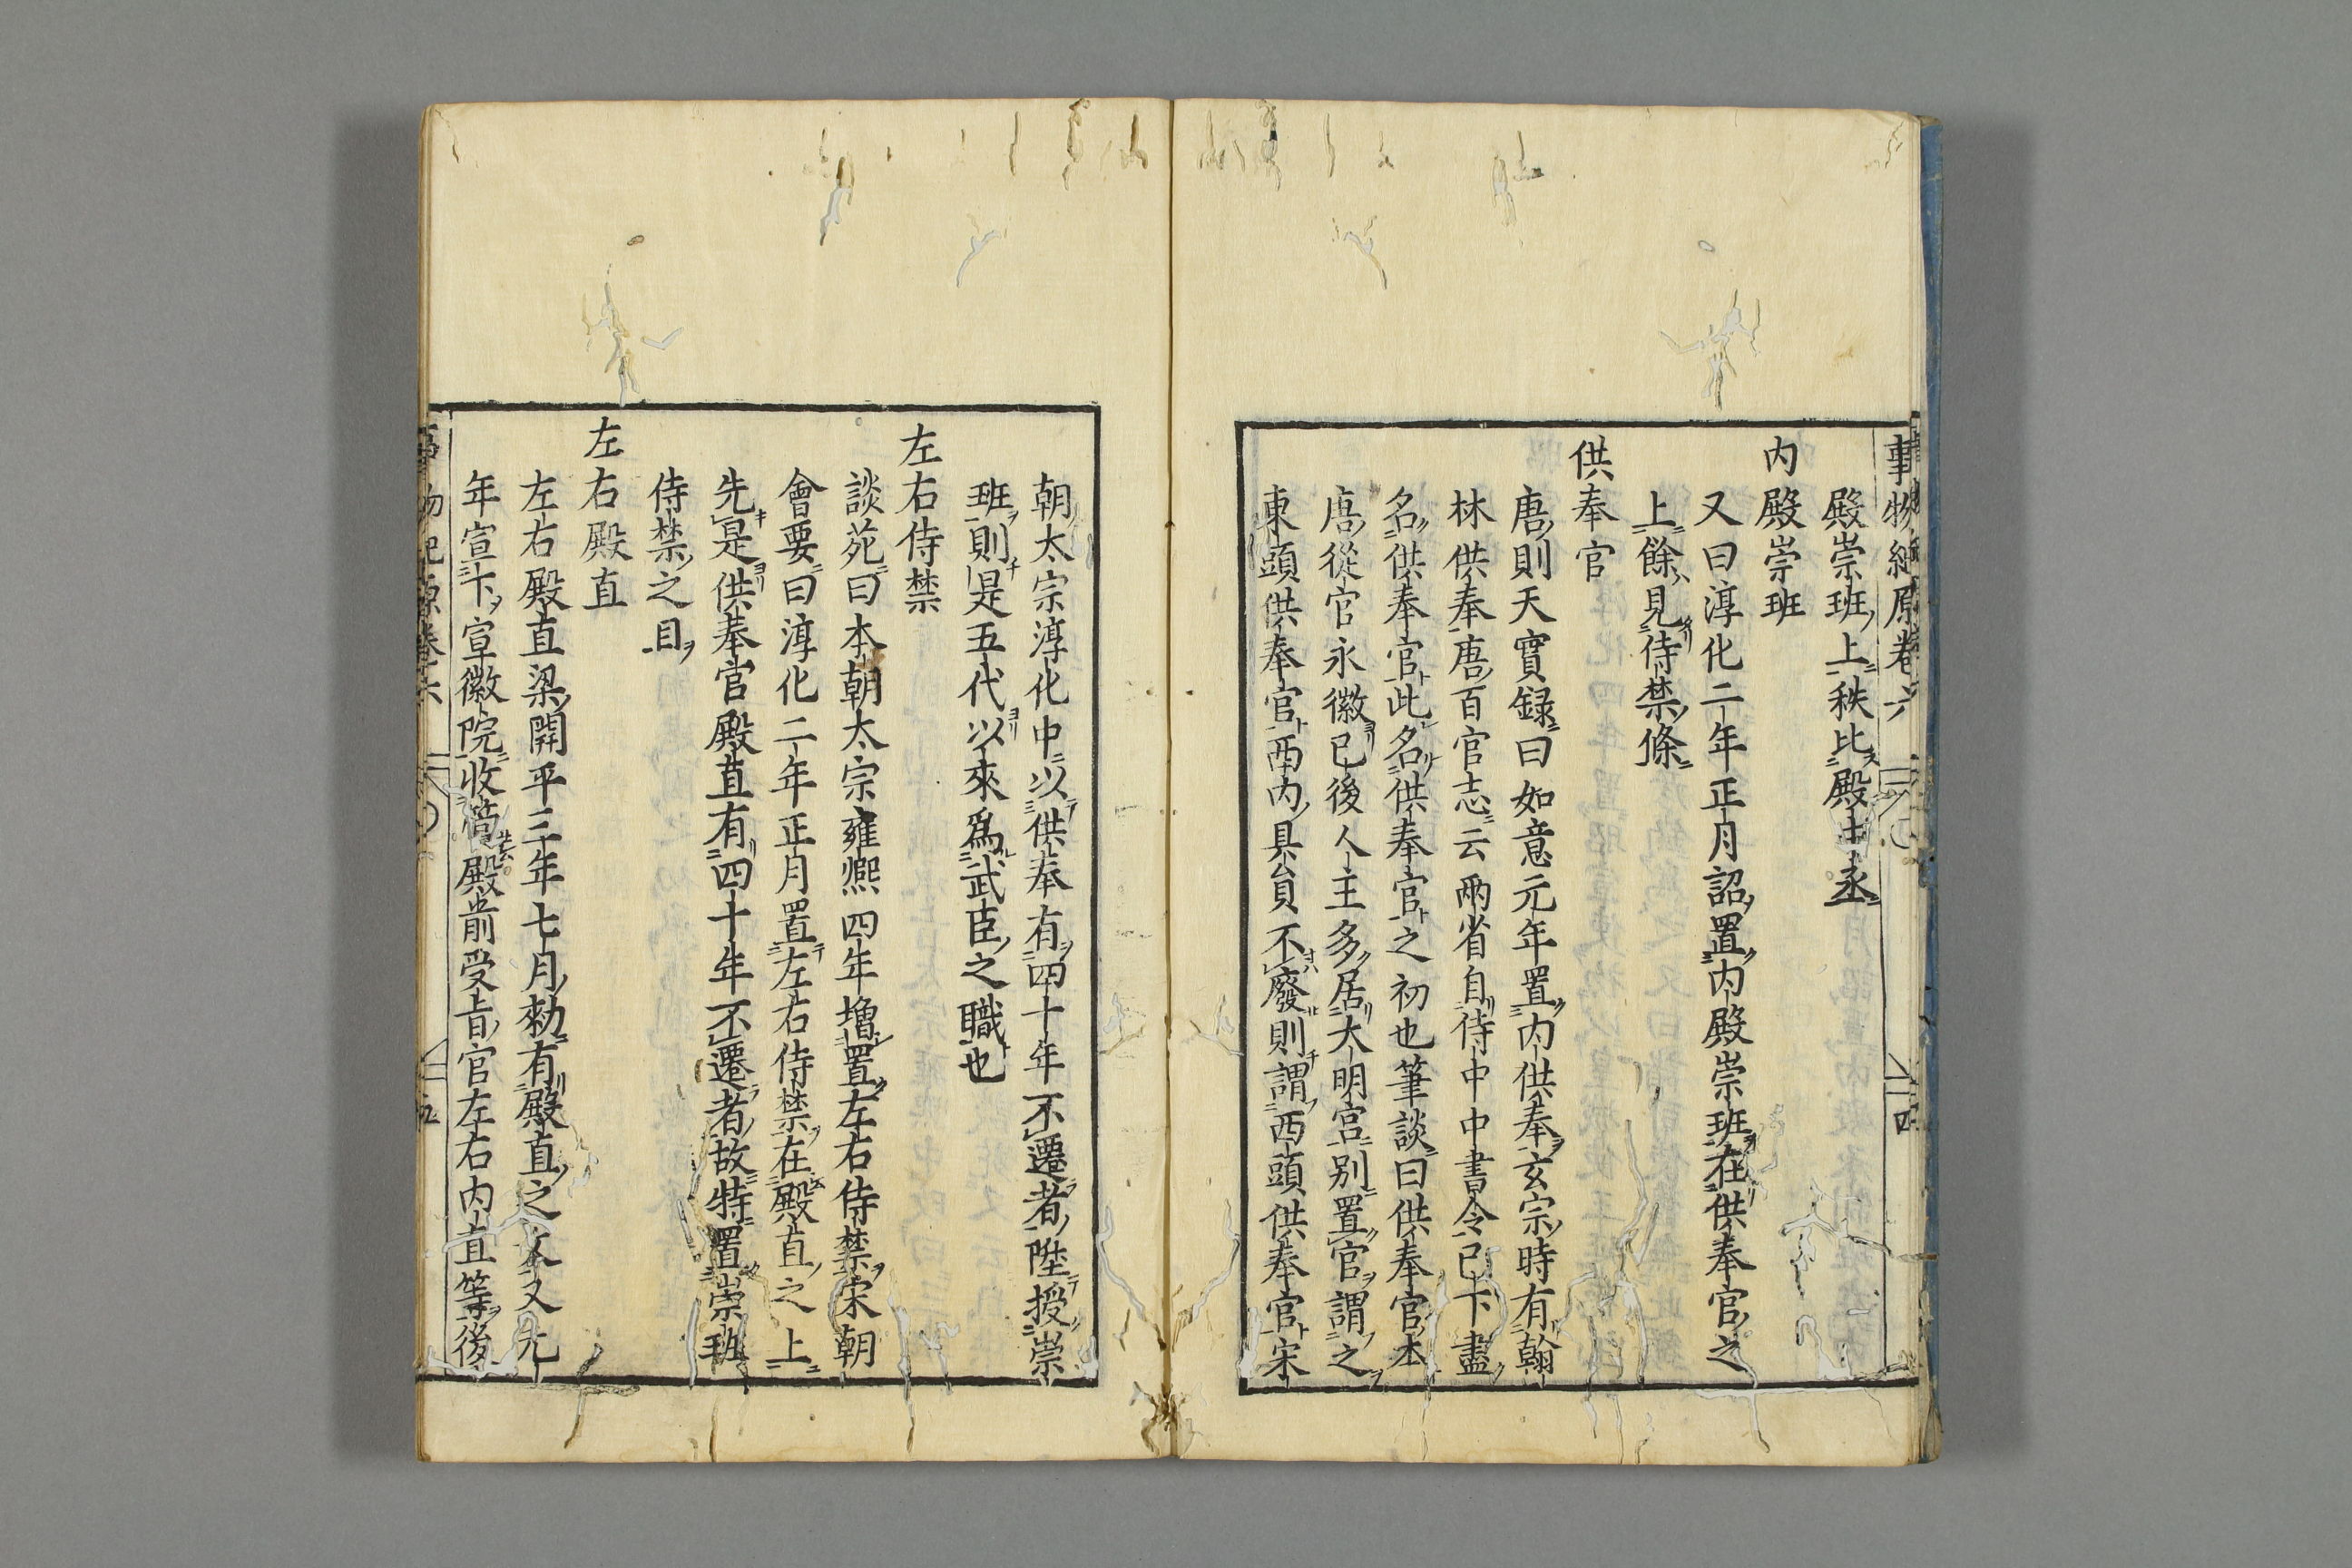 事物紀原卷六
殿崇班上秩比殿中丞
内殿崇班
又曰淳化二年正月詔置内殿崇班在供奉官之
上餘見侍禁條
供奉官
唐則天實録曰如意元年置内供奉玄宗時有翰
林供奉唐百官志云兩省自侍中中書令已下盡
名供奉官此名供奉官之初也筆談曰供奉官本
唐從官永徽已後人主多居大明宮别置官謂之
東頭供奉官西内具負不廢則謂西頭供奉官宋
四
朝太宗淳化中以供奉有四十年不遷者陞授崇
班則是五代以來爲武臣之職也
左右侍禁
談苑曰本朝太宗雍熈四年増置左右侍禁宋朝
會要曰淳化二年正月置左右侍禁在殿直之上
先是供奉官殿直有四十年不遷者故特置崇班
侍禁之目
左右殿直
左右殿直梁開平三年七月勑有殿直之文又元
年宣下宣徽院收管殿前受旨官左右内直等後
事物紀原卷六
五